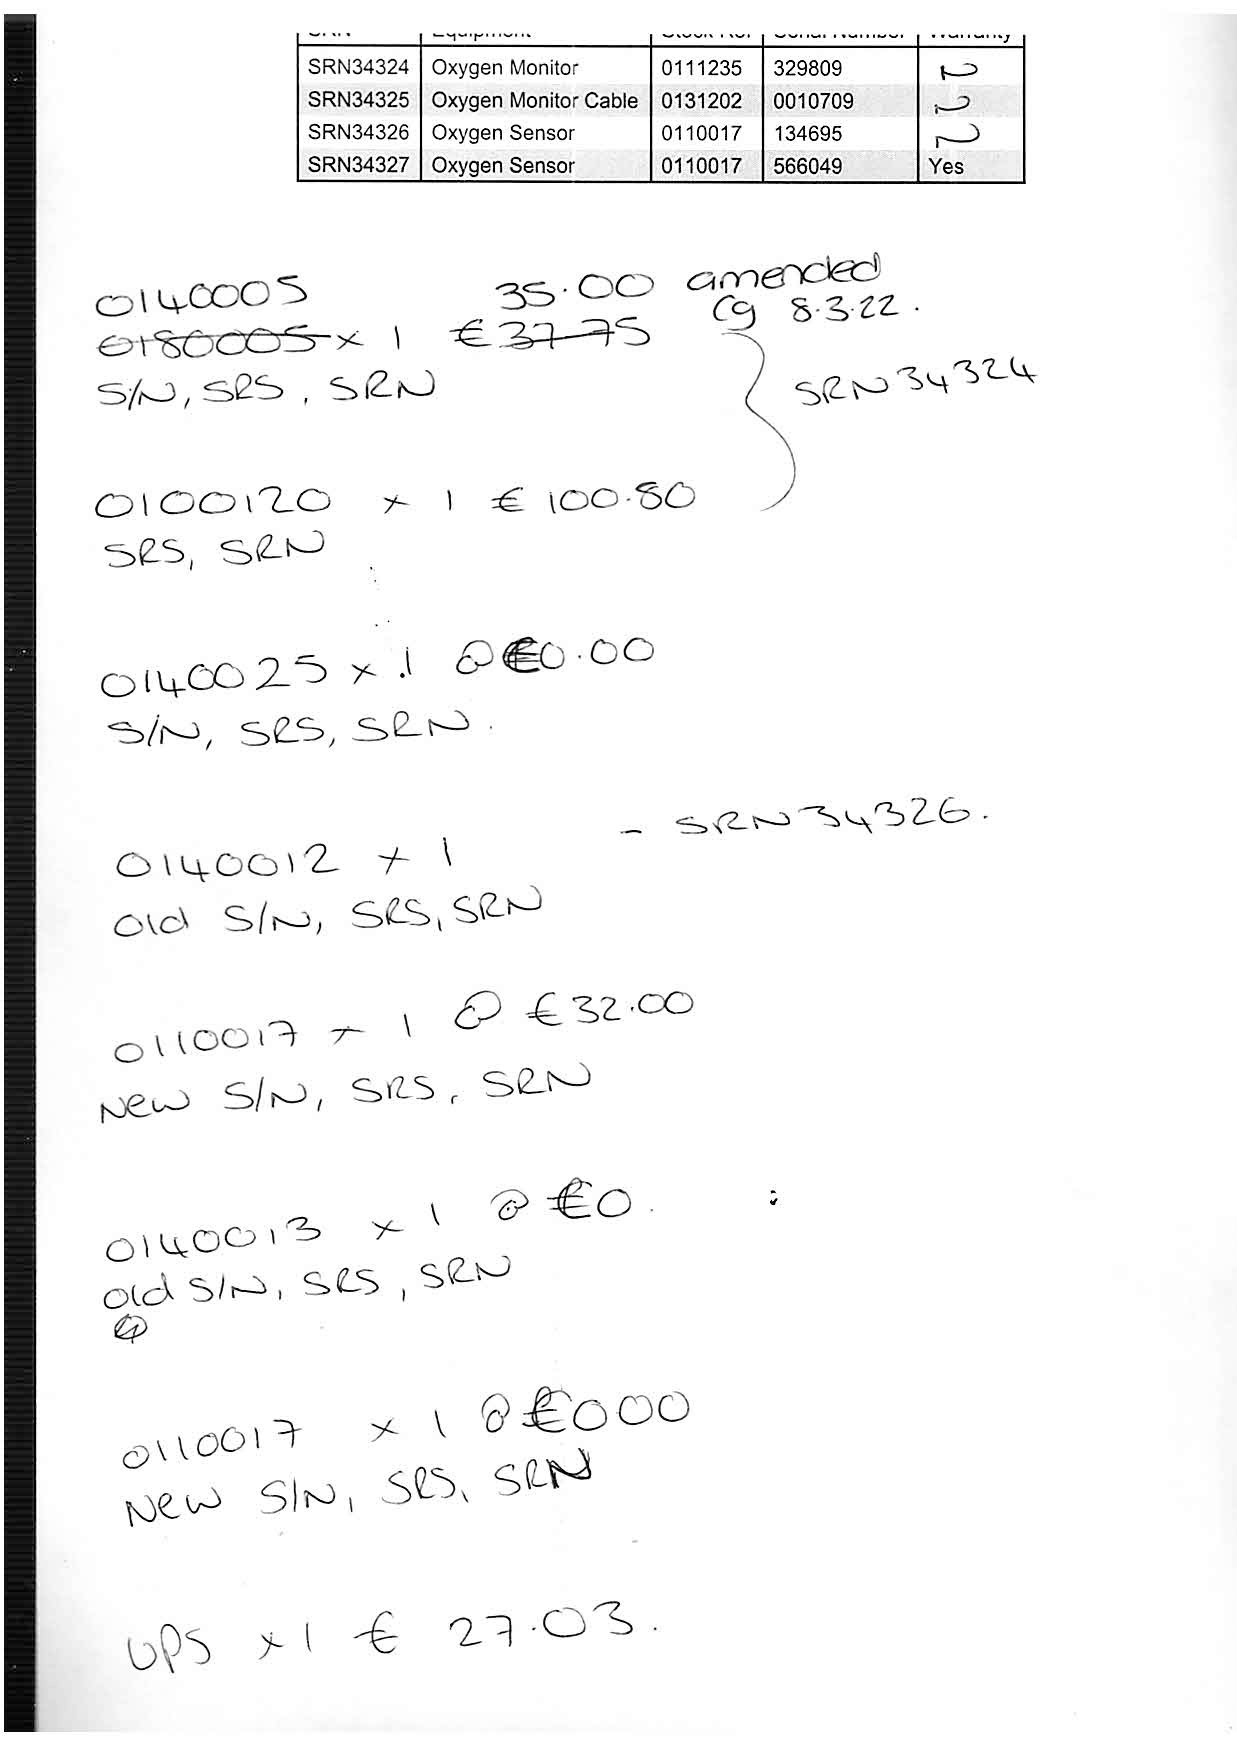 SRN Equipment Stock Ref Serial Number Warranty
SRN34324 Oxygen Monitor 0111235 329809 N
SRN34325 Oxygen Monitor Cable 0131202 0010709 N
SRN34326 Oxygen Sensor 0110017 134695 N
SRN34327 Oxygen Sensor 0110017 566049 Yes
0140005 35.00 amended
0180005 x 1 € 37.75 Cg 8.3.22.
S/N, SRS, SRN SRN34324
0100120 x 1 € 100.80
SRS, SRN
0140025 x 1 @ €0.00
S/N, SRS, SRN.
- SRN34326.
0140012 x 1
Old S/N, SRS, SRN
0110017 x 1 @ €32.00
New S/N, SRS, SRN
0140013 x 1 @ €0.
Old S/N, SRS, SRN
0110017 x 1 @ €000
New S/N, SRS, SRN
UPS x 1 € 27.03.